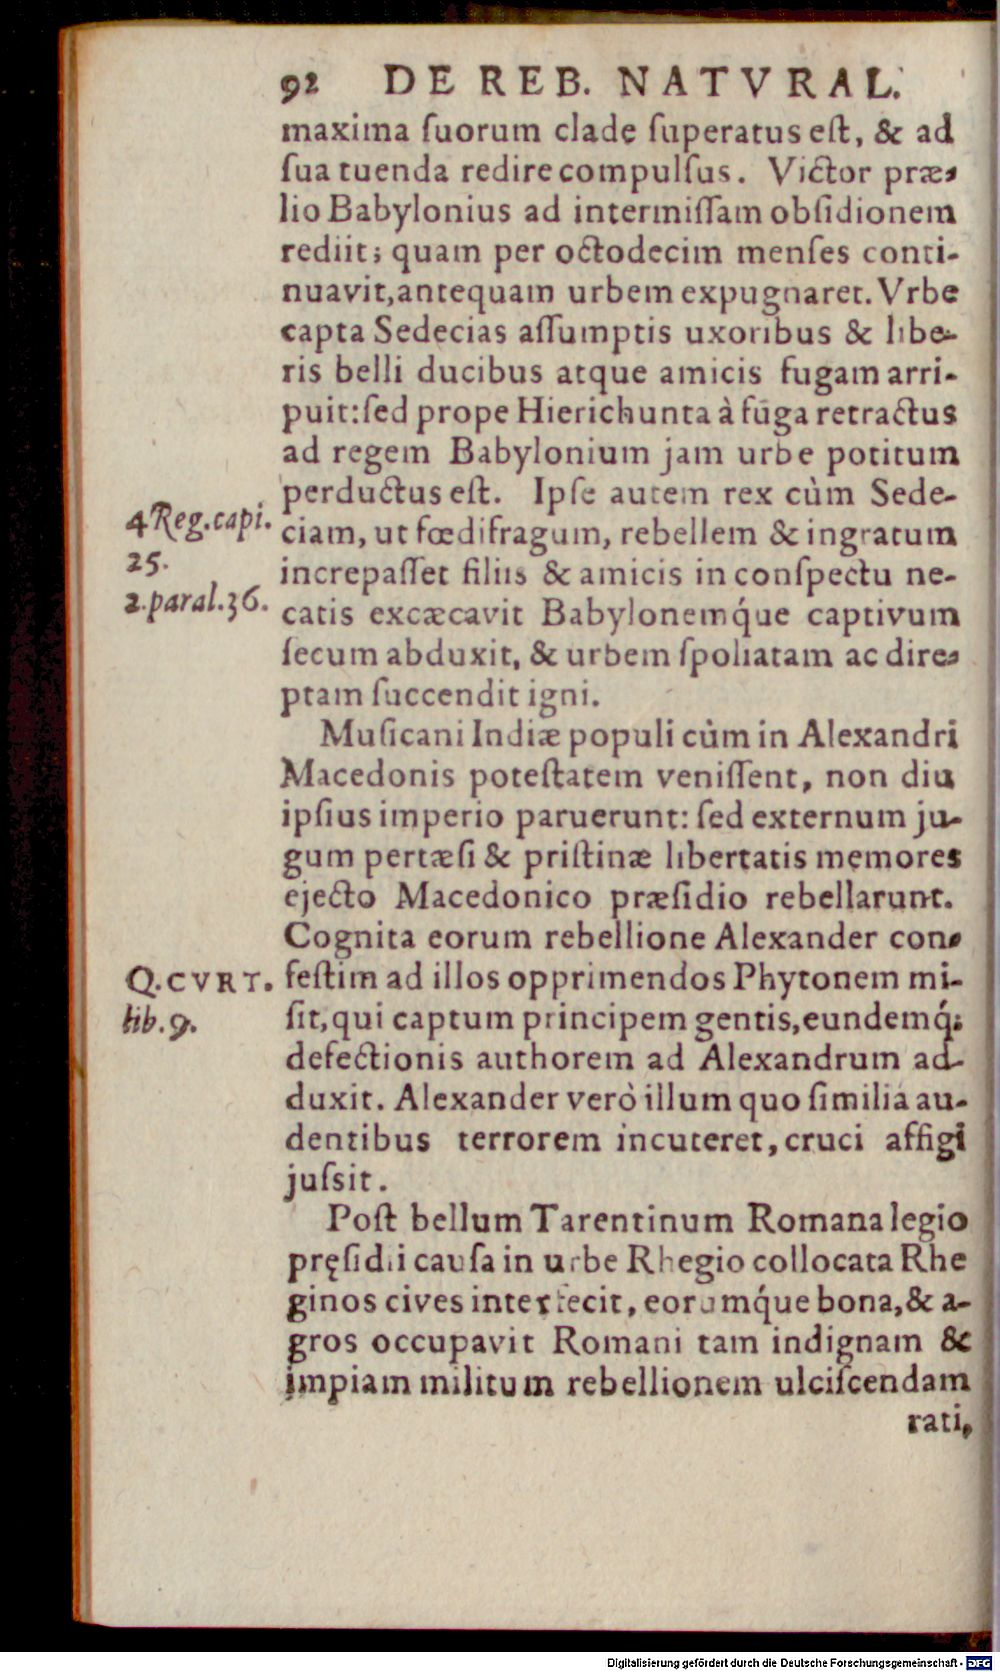 92 DE REB. NATVRAL.
maxima ſuorum clade ſuperatus eſt, & ad
ſua tuenda redire compulſus. Victor præ-
lio Babylonius ad intermiſſam obſidionem
rediit; quam per octodecim menſes conti-
nuavit, antequam urbem expugnaret. Vrbe
capta Sedecias aſſumptis uxoribus & libe-
ris belli ducibus atque amicis fugam arri-
puit: ſed prope Hierichunta à fuga retractus
ad regem Babylonium jam urbe potitum
perductus eſt. Ipſe autem rex cùm Sede-
4 Reg. capi.
25.
2. paral. 36.
ciam, ut fœdifragum, rebellem & ingratum
increpaſſet filiis & amicis in conſpectu ne-
catis excæcavit Babylonemq́ue captivum
ſecum abduxit, & urbem ſpoliatam ac dire-
ptam ſuccendit igni.
Muſicani Indiæ populi cùm in Alexandri
Macedonis poteſtatem veniſſent, non diu
ipſius imperio paruerunt: ſed externum ju-
gum pertæſi & priſtinæ libertatis memores
ejecto Macedonico præſidio rebellarunt.
Cognita eorum rebellione Alexander con-
Q. CVRT.
lib. 9.
feſtim ad illos opprimendos Phytonem mi-
ſit, qui captum principem gentis, eundemq́;
defectionis authorem ad Alexandrum ad-
duxit. Alexander verò illum quo ſimilia au-
dentibus terrorem incuteret, cruci affigi
juſsit.
Poſt bellum Tarentinum Romana legio
pręſidii cauſa in urbe Rhegio collocata Rhe
ginos cives interfecit, eorumq́ue bona, & a-
gros occupavit Romani tam indignam &
impiam militum rebellionem ulciſcendam
rati,
Digitalisierung gefördert durch die Deutsche Forschungsgemeinschaft - DFG